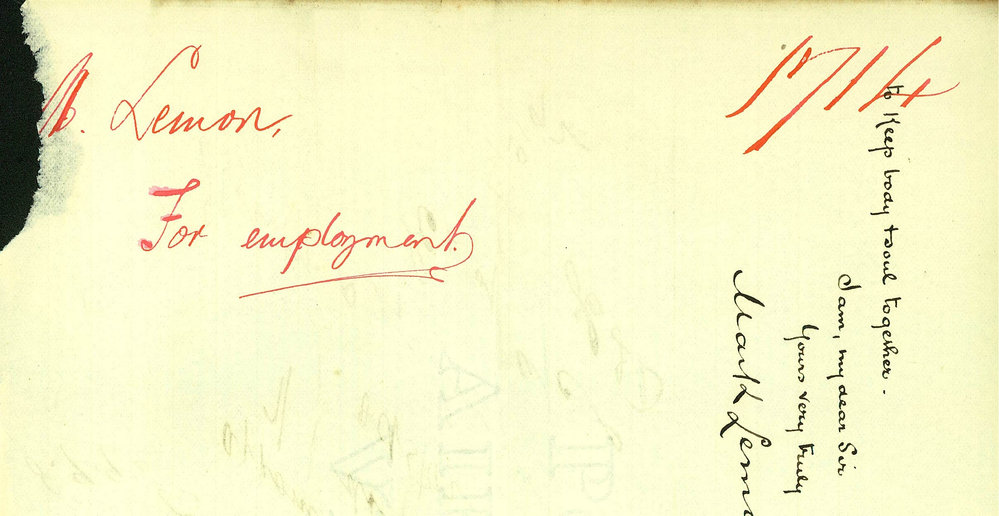 M. Lemon,
For employment.
1714
to keep body & soul together.
I am, my dear Sir
Yours very truly
Mark Lemo